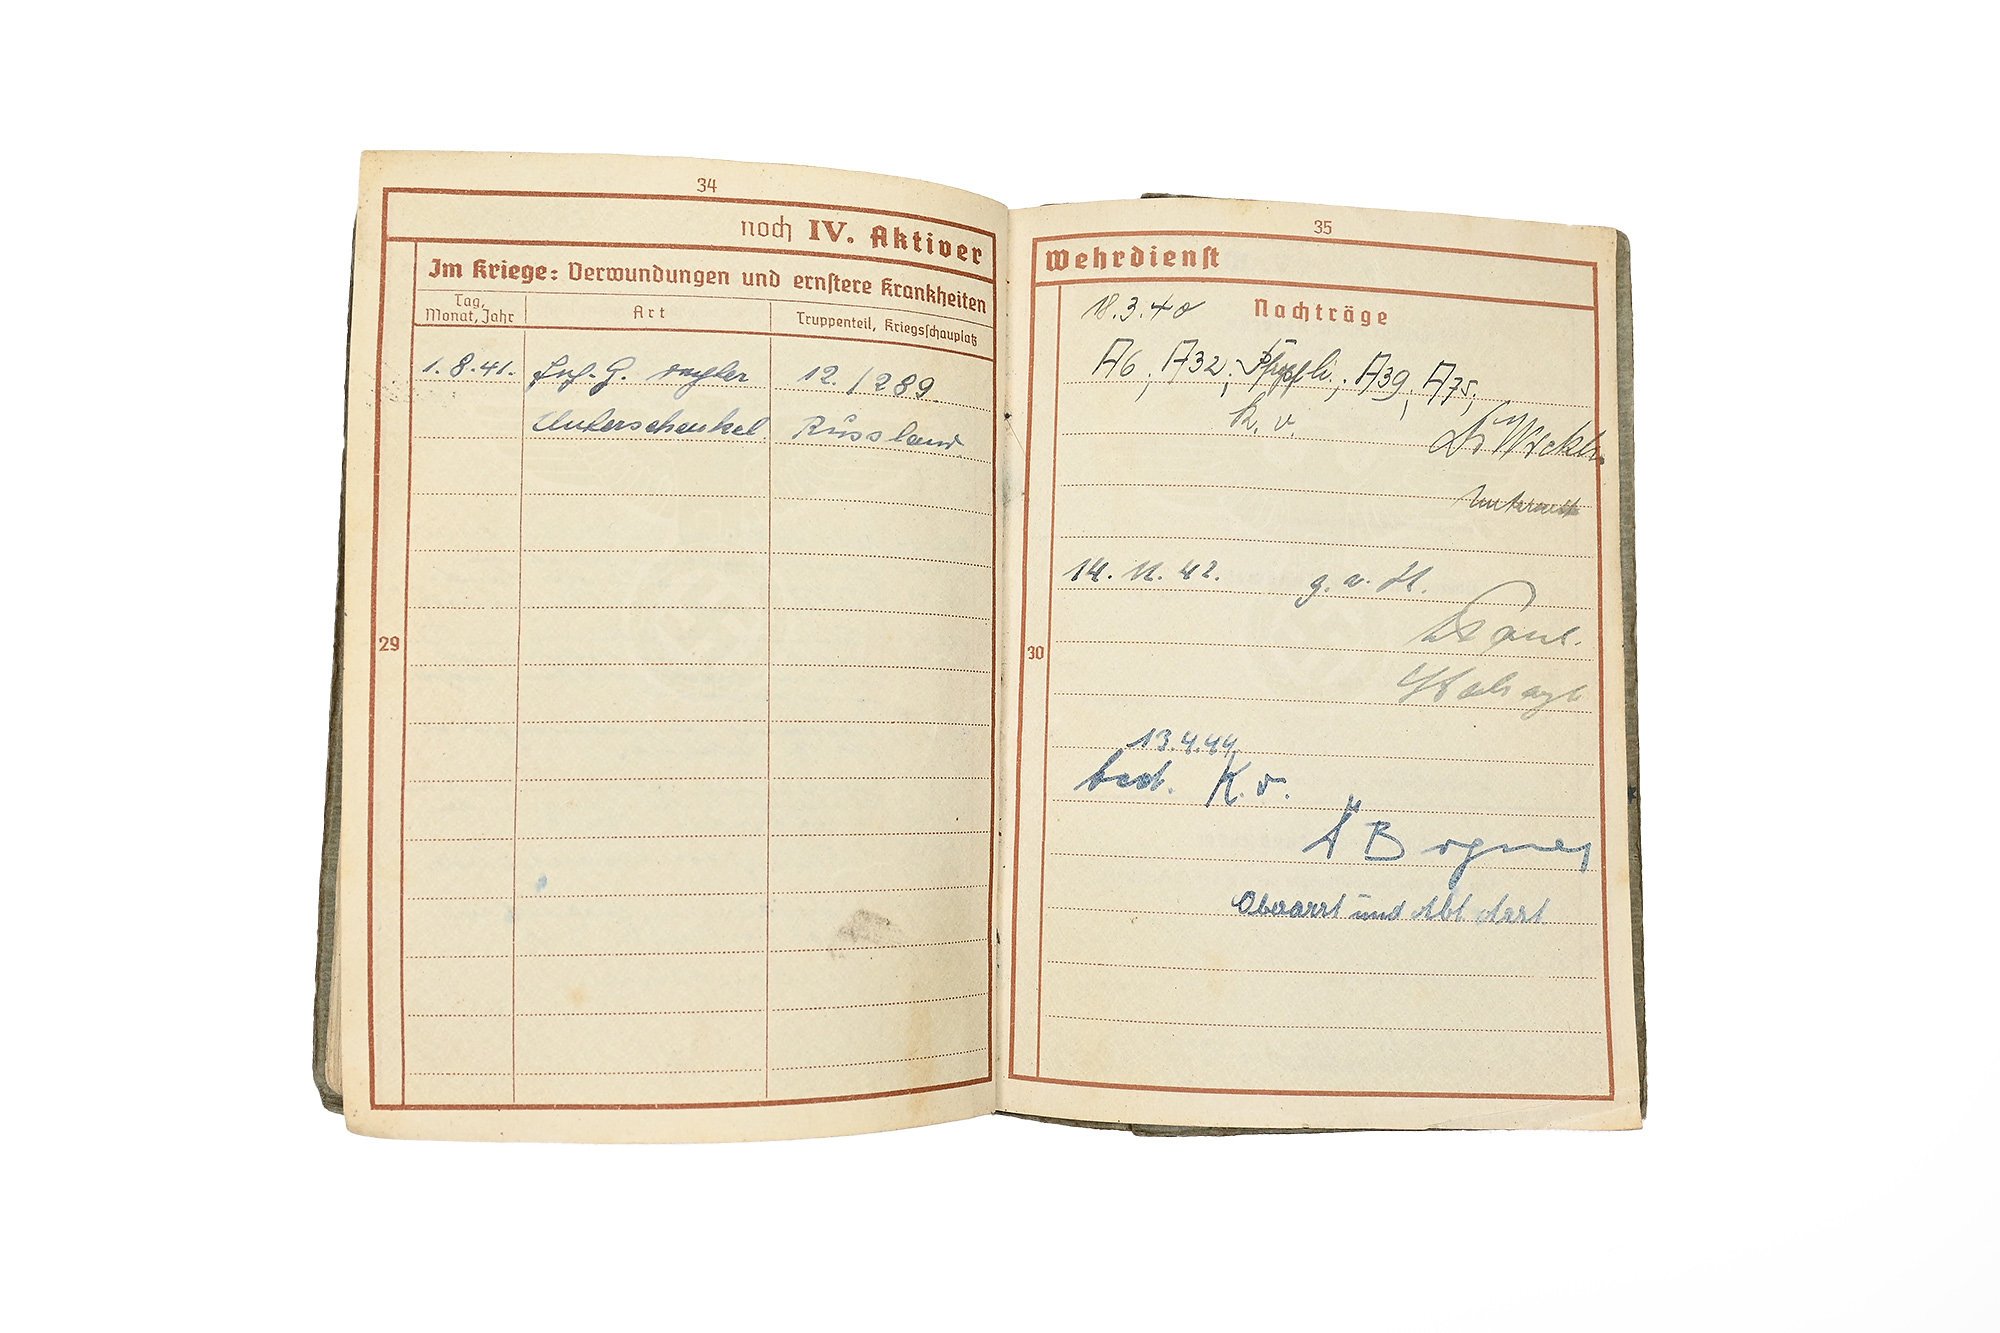 34
noch IV. Aktiver
Im Kriege: Verwundungen und ernstere Krankheiten
Tag, Monat, Jahr
Art
Truppenteil, Kriegsschauplatz
1.8.41. Inf. G. rechter 12./289.
Unterschenkel Russland
29
35
Wehrdienst
18.3.40 Nachträge
A6, A32, A39, A75,
k. v.
Unterarzt
14. 11. 42. g. v. H.
Stabsarzt
30
13.4.44
bed. K.v.
Dr Bogner
Oberarzt und Abt Arzt